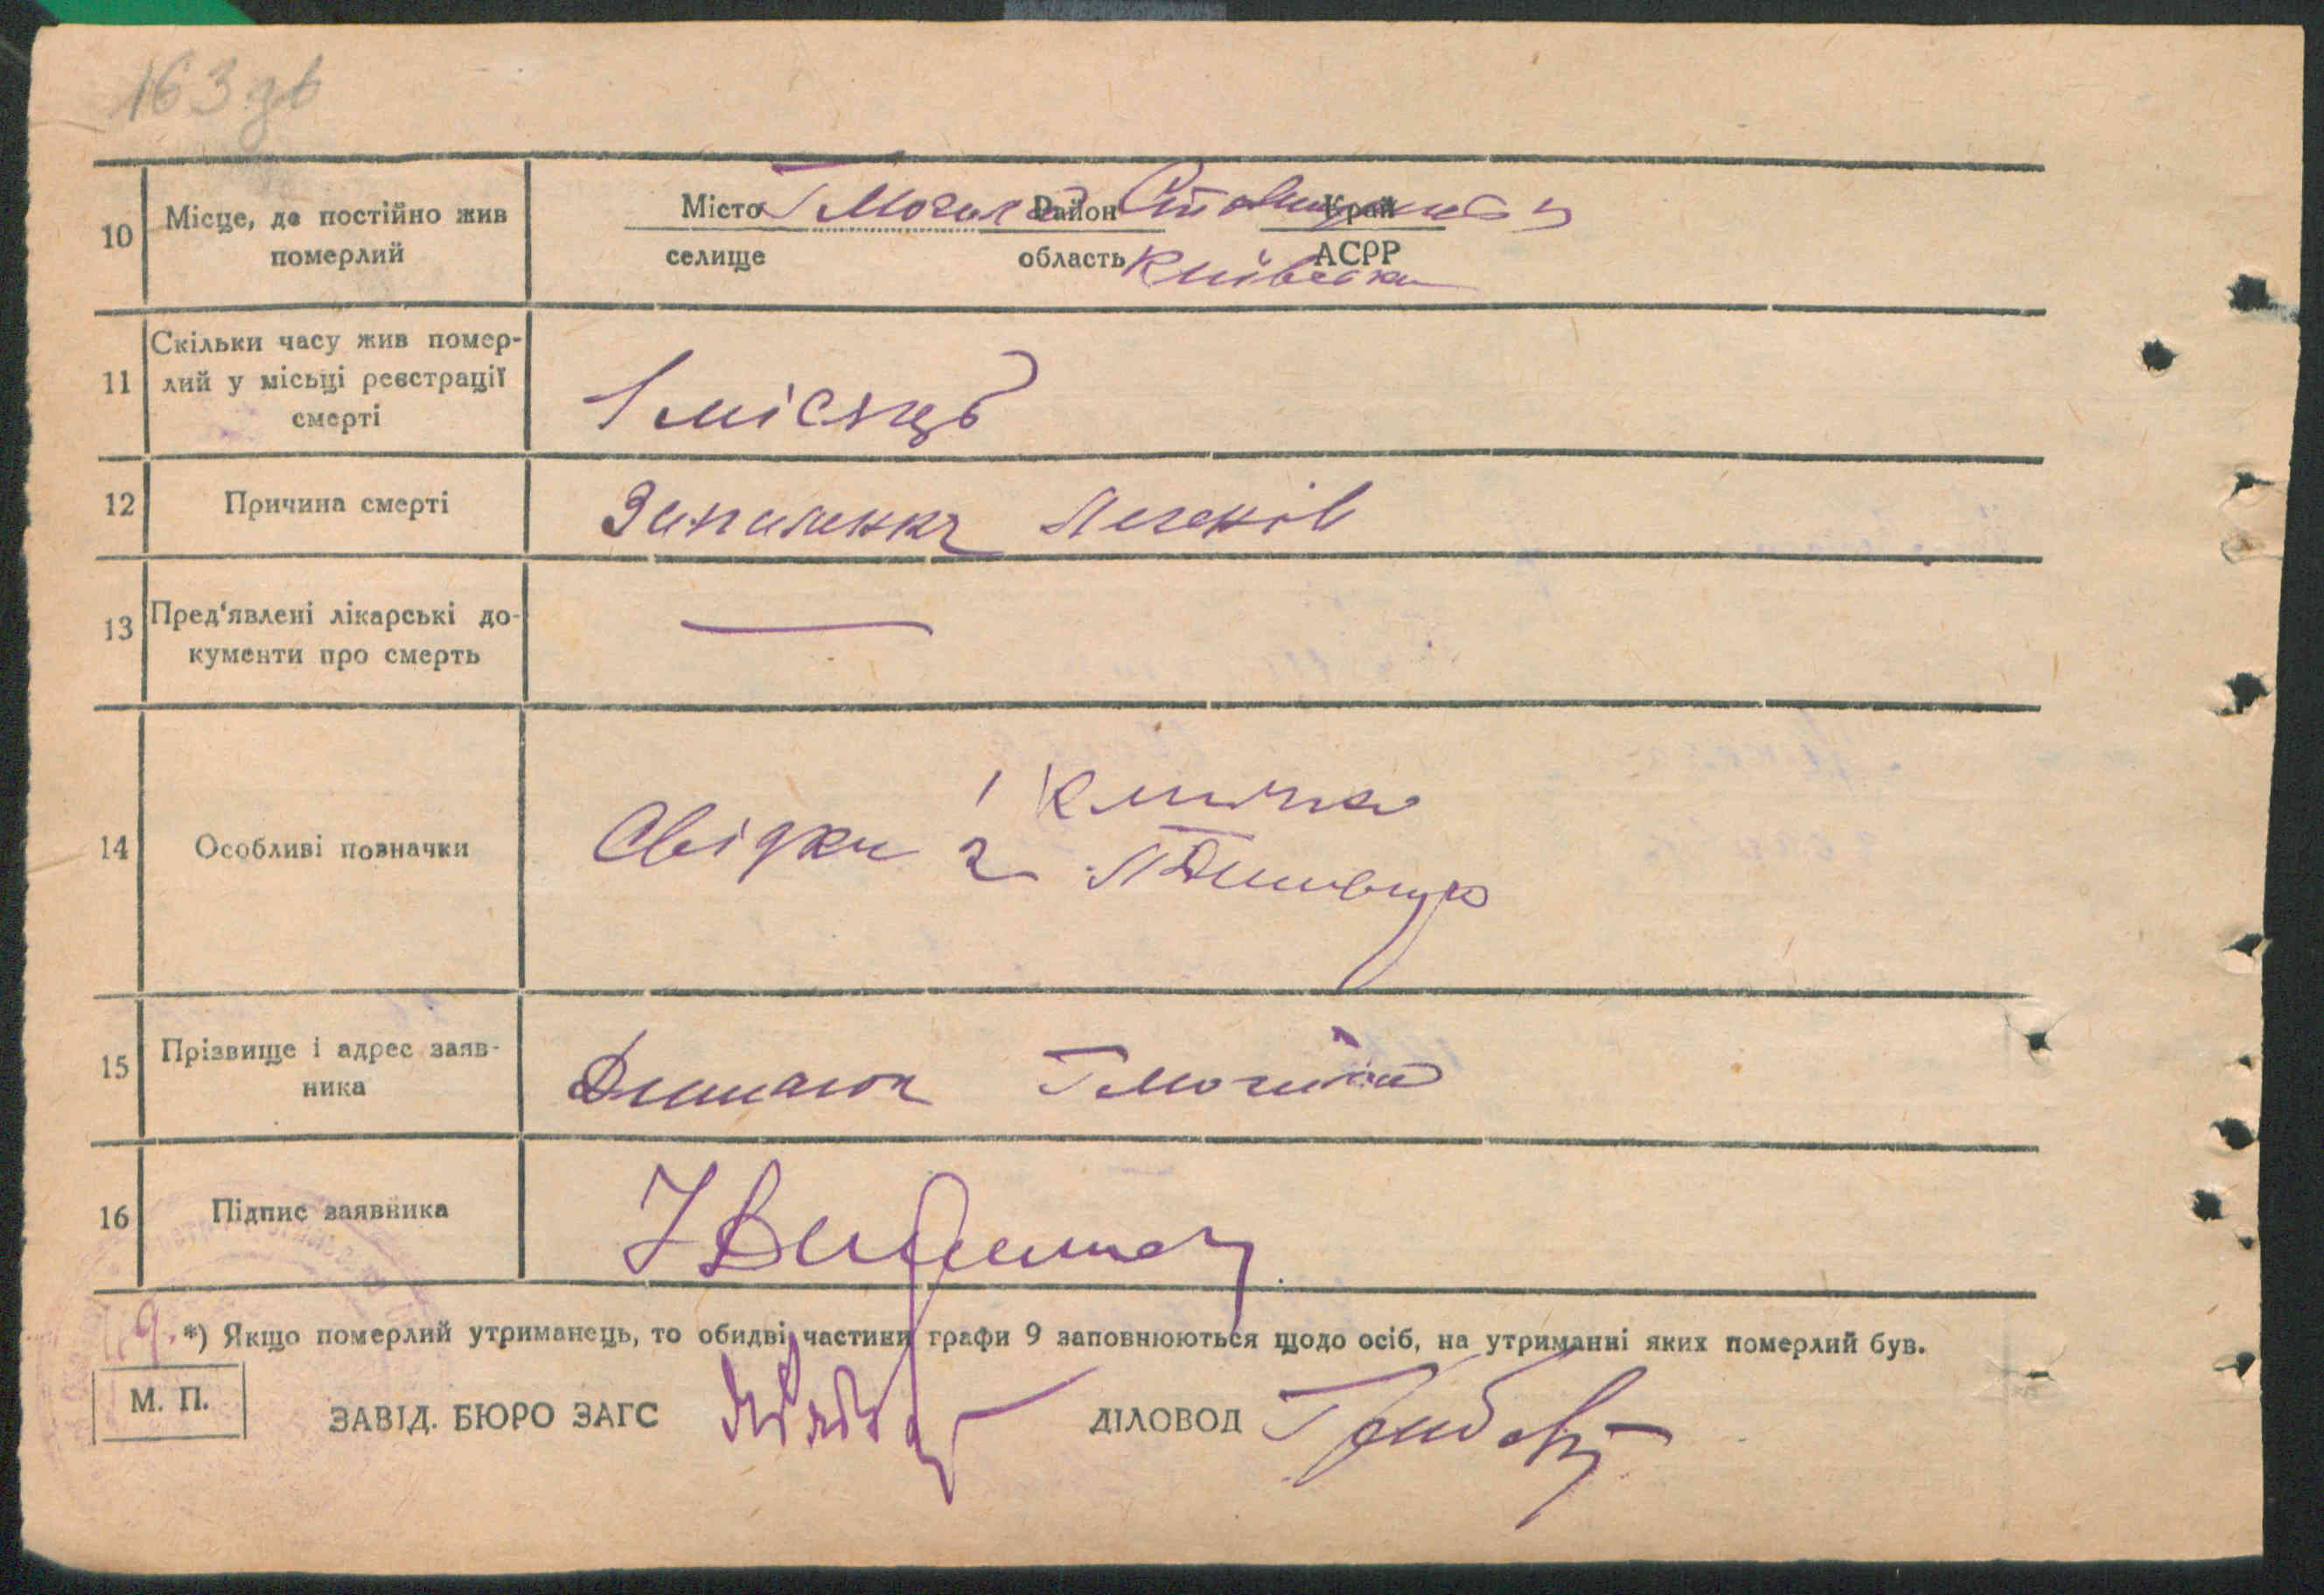 163 зв
10
Місце, де постійно жив
померлий
Місто Г Могила Район Ставищенськ Край
селище область Київська АСРР
11
Скільки часу жив помер-
лий у місьці реєстрації
смерті
1 місяць
12
Причина смерті
Запалення Легенів
13
Пред'явлені лікарські до-
кументи про смерть
14
Особливі позначки
1
Свідки 2
15
Прізвище і адрес заяв-
ника
Г Могила
16
Підпис заявника
*) Якщо померлий утриманець, то обидві частини графи 9 заповнюються щодо осіб, на утриманні яких померлий був.
М. П.
ЗАВІД. БЮРО ЗАГС ДІЛОВОД